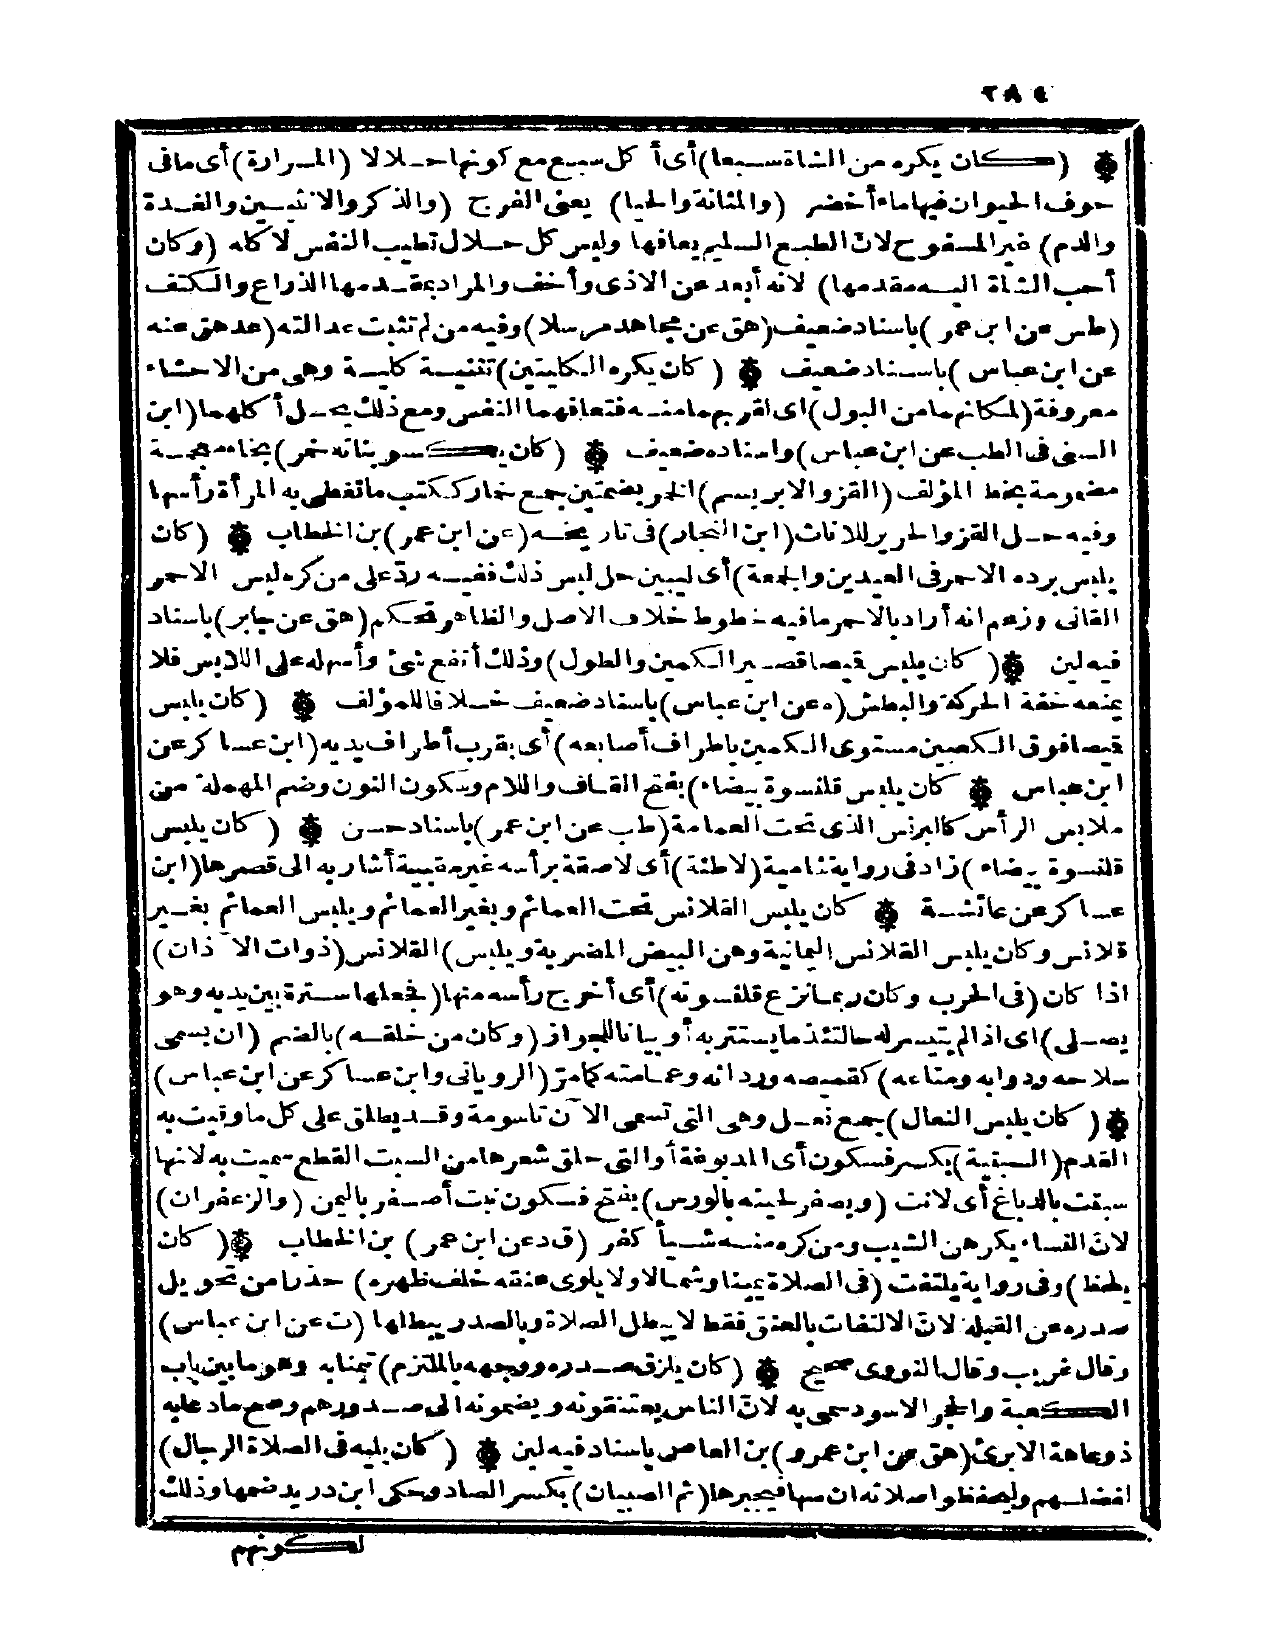 ٢٨٤
(كان يكره من الشاة سبعا) أى أكل سبع مع كونها حلالا (المرارة) أى ما فى
جوف الحيوان فيها ماء أخضر (والمثانة والحيا) يعنى الفرج (والذكر والانثيين والغدة
والدم) غير المسفوح لانّ الطبع السليم يعافها وليس كل حلال تطيب النفس لاكله (وكان
أحب الشاة اليه مقدمها) لانه أبعد عن الاذى وأخف والمراد بمقدمها الذراع والكتف
(طس عن ابن عمر) باسناد ضعيف (هق عن مجاهد مرسلا) وفيه من لم تثبت عدالته (عد هق عنه
عن ابن عباس) باسناد ضعيف (كان يكره الكليتين) تثنية كلية وهى من الاحشاء
معروفة (لمكانهما من البول) اى لقربهما منه فتعافهما النفس ومع ذلك يحل أكلهما (ابن
السنى فى الطب عن ابن عباس) واسناده ضعيف (كان يكسو بناته خمر) بخاء معجمة
مضمومة بخط المؤلف (القز والابريسم) الخمر بضمتين جمع خمار ككتب ما تغطى به المرأة رأسها
وفيه حل القز والحرير للاناث (ابن النجار) فى تاريخه (عن ابن عمر) بن الخطاب (كان
يلبس برده الاحمر فى العيدين والجمعة) أى ليبين حل لبس ذلك ففيه ردّ على من كره لبس الاحمر
القانى وزعم انه أراد بالاحمر ما فيه خطوط خلاف الاصل والظاهر تحكم (هق عن جابر) باسناد
فيه لين (كان يلبس قميصا قصير الكمين والطول) وذلك أنفع شئ وأسهله على اللابس فلا
يمنعه خفة الحركة والبطش (ه عن ابن عباس) باسناد ضعيف خلافا للمؤلف (كان يلبس
قميصا فوق الكعبين مستوى الكمين باطراف أصابعه) أى بقرب أطراف يديه (ابن عساكر عن
ابن عباس (كان يلبس قلنسوة بيضاء) بفتح القاف واللام وسكون النون وضم المهملة من
ملابس الرأس كالبرنس الذى تحت العمامة (طب عن ابن عمر) باسناد حسن (كان يلبس
قلنسوة بيضاء) زاد فى رواية شامية (لاطئة) أى لاصقة برأسه غير مقببة أشار به الى قصرها (ابن
عساكر عن عائشة (كان يلبس القلانس تحت العمائم وبغير العمائم ويلبس العمائم بغير
قلانس وكان يلبس القلانس اليمانية وهن البيض المضرية ويلبس) القلانس (ذوات الآذان)
اذا كان (فى الحرب وكان ربما نزع قلنسوته) أى أخرج رأسه منها (فجعلها سترة بين يديه وهو
يصلى) اى اذا لم يتيسر له حالتئذ ما يستتر به أو بيانا للجواز (وكان من خلقه) بالضم (ان يسمى
سلاحه ودوابه ومتاعه) كقميصه وردائه وعمامته كما مرّ (الرويانى وابن عساكر عن ابن عباس)
(كان يلبس النعال) جمع نعل وهى التى تسمى الآن تاسومة وقد يطلق على كل ما وقيت به
القدم (السبتية) بكسر فسكون أى المدبوغة أو التى حلق شعرها من السبت القطع سميت به لانها
سبتت بالدباغ أى لانت (ويصفر لحيته بالورس) بفتح فسكون نبت أصفر باليمن (والزعفران)
لانّ النساء يكرهن الشيب ومن كره منه شيأ كفر (ق د عن ابن عمر) بن الخطاب (كان
يلحظ) وفى رواية يلتفت (فى الصلاة يمينا وشمالا ولا يلوى عنقه خلف ظهره) حذرا من تحويل
صدره عن القبلة لانّ الالتفات بالعنق فقط لا يبطل الصلاة وبالصدر يبطلها (ت عن ابن عباس)
وقال غريب وقال النووى صحيح (كان يلزق صدره ووجهه بالملتزم) تيمنا به وهو ما بين باب
الكعبة والحجر الاسود سمى به لانّ الناس يعتنقونه ويضمونه الى صدورهم وصح ما دعا به
ذو عاهة الا برئ (هق عن ابن عمرو) بن العاص باسناد فيه لين (كان يليه فى الصلاة الرجال)
لفضلهم وليحفظوا صلاته ان سها فيجبرها (ثم الصبيان) بكسر الصاد وحكى ابن دريد ضمها وذلك
لكونهم